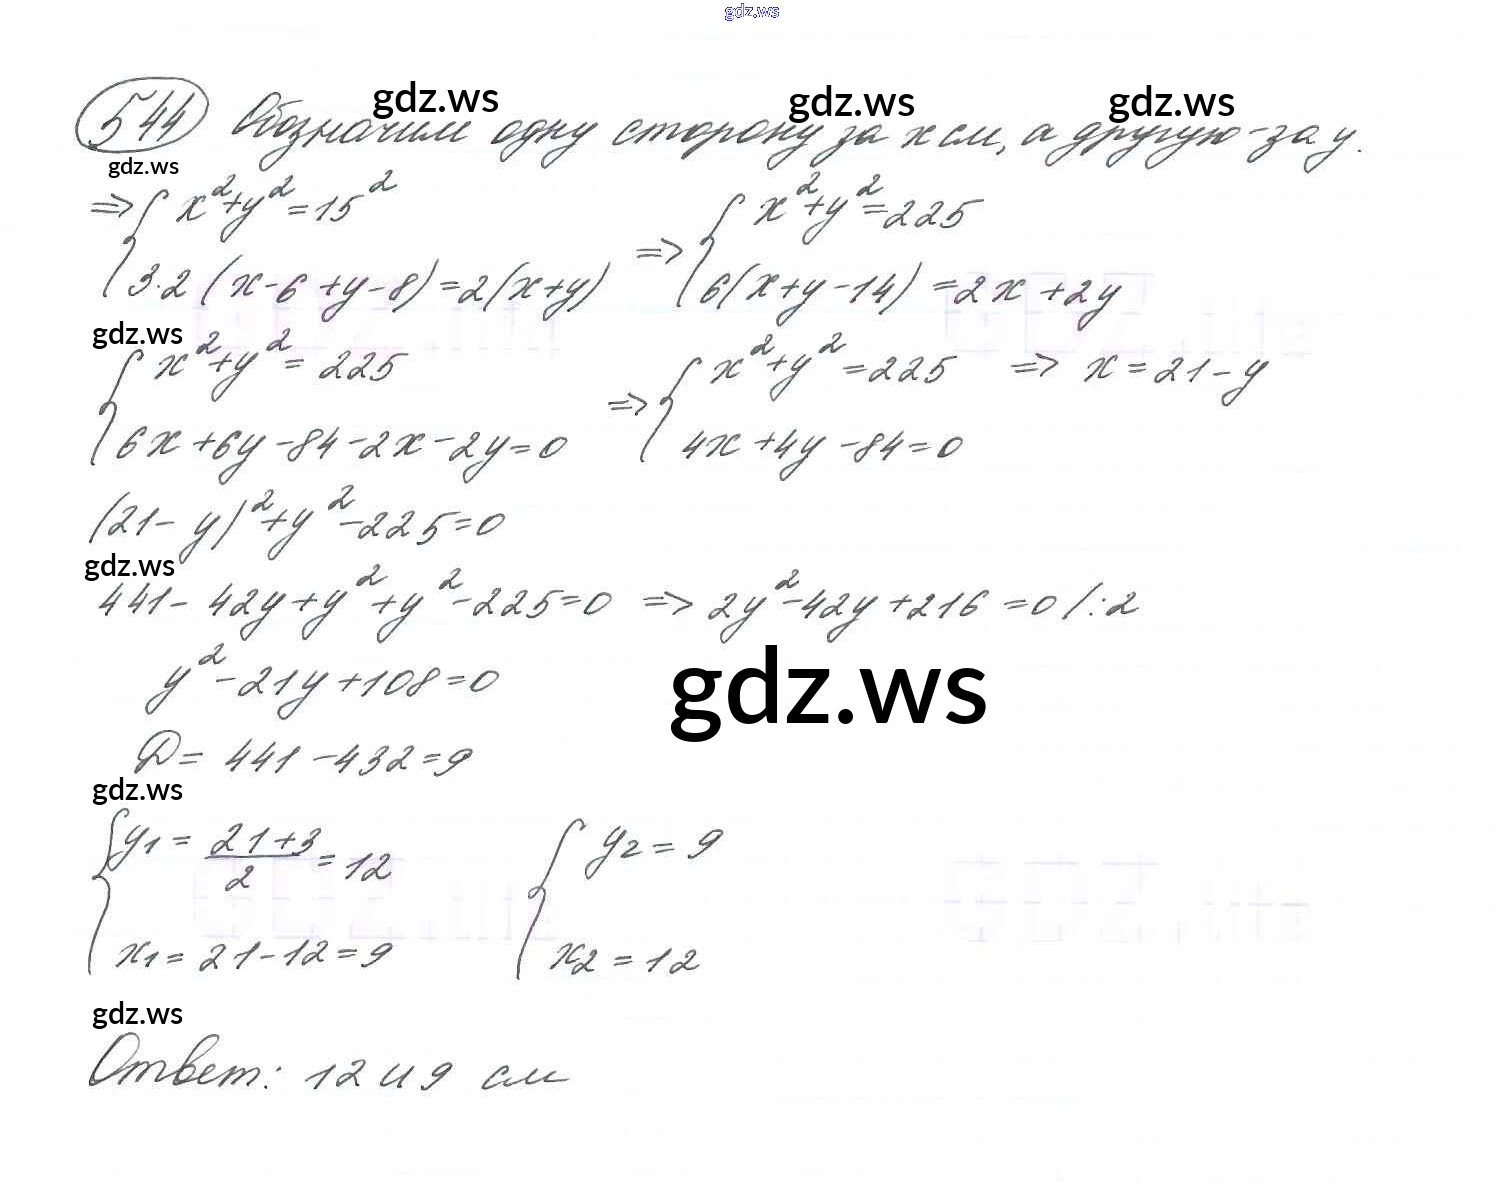 gdz.ws
544 Обозначим одну сторону за x см, а другую - за y.
gdz.ws gdz.ws gdz.ws
gdz.ws
=> { x² + y² = 15² => { x² + y² = 225
3·2 (x - 6 + y - 8) = 2(x + y) 6(x + y - 14) = 2x + 2y
gdz.ws
{ x² + y² = 225 => { x² + y² = 225 => x = 21 - y
6x + 6y - 84 - 2x - 2y = 0 4x + 4y - 84 = 0
(21 - y)² + y² - 225 = 0
gdz.ws
441 - 42y + y² + y² - 225 = 0 => 2y² - 42y + 216 = 0 /:2
y² - 21y + 108 = 0
gdz.ws
D = 441 - 432 = 9
gdz.ws
{ y₁ = (21 + 3)/2 = 12 { y₂ = 9
x₁ = 21 - 12 = 9 x₂ = 12
gdz.ws
Ответ: 12 и 9 см